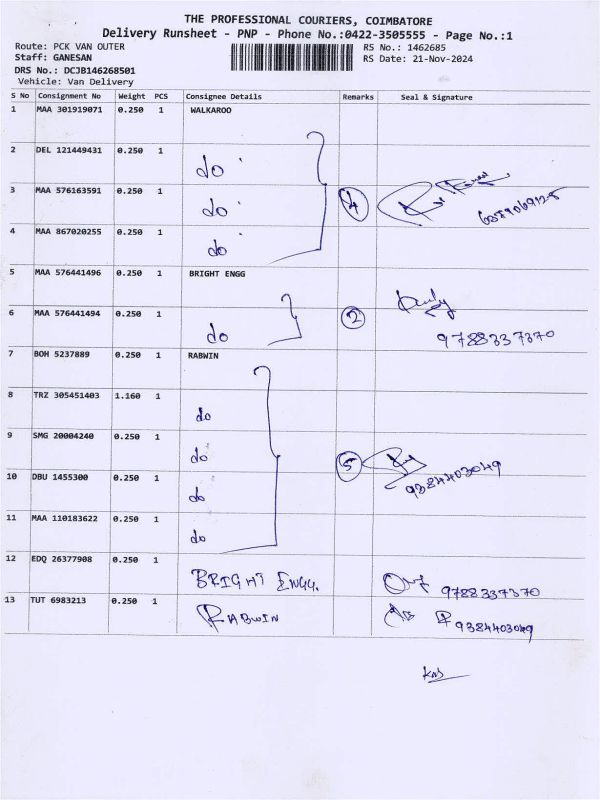 THE PROFESSIONAL COURIERS, COIMBATORE
Delivery Runsheet - PNP - Phone No.:0422-3505555 - Page No.:1
Route: PCK VAN OUTER RS No.: 1462685
Staff: GANESAN RS Date: 21-Nov-2024
DRS No.: DCJB146268501
Vehicle: Van Delivery
S No Consignment No Weight PCS Consignee Details Remarks Seal & Signature
1 MAA 301919071 0.250 1 WALKAROO
2 DEL 121449431 0.250 1 do
3 MAA 576163591 0.250 1 do 4
4 MAA 867020255 0.250 1 do
5 MAA 576441496 0.250 1 BRIGHT ENGG
6 MAA 576441494 0.250 1 do 2 9788337370
7 BOH 5237889 0.250 1 RABWIN
8 TRZ 305451403 1.160 1 do
9 SMG 20004240 0.250 1 do 5 9384403049
10 DBU 1455300 0.250 1 do
11 MAA 110183622 0.250 1 do
12 EDQ 26377908 0.250 1 BRIGHT ENGG. 9788337370
13 TUT 6983213 0.250 1 RABWIN 9384403049